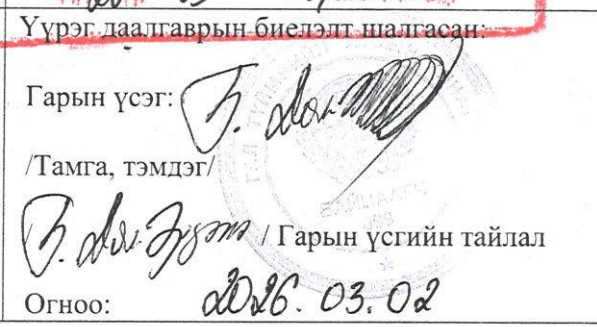 Үүрэг даалгаврын биелэлт шалгасан:
Гарын үсэг:
/Тамга, тэмдэг/
/ Гарын үсгийн тайлал
Огноо: 2026. 03. 02